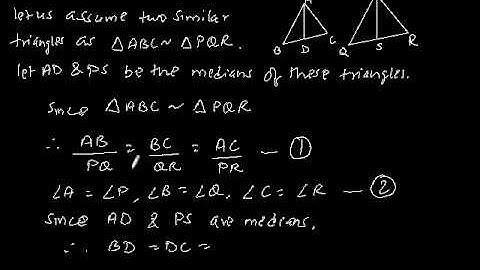 let us assume two similar
triangles as △ABC ~ △PQR.
let AD & PS be the medians of these triangles.
B D C Q S R
since △ABC ~ △PQR
∴ AB/PQ = BC/QR = AC/PR — ①
∠A = ∠P, ∠B = ∠Q, ∠C = ∠R — ②
since AD & PS are medians,
∴ BD = DC =